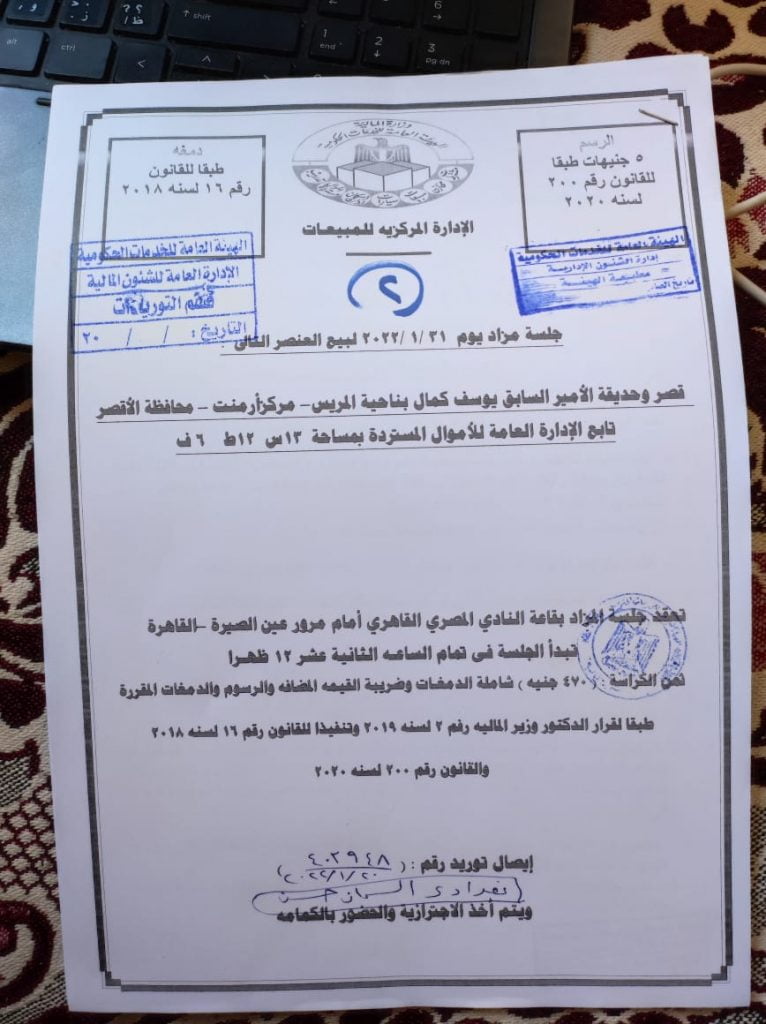 الرسم
٥ جنيهات طبقا
للقانون رقم ٢٠٠
لسنه ٢٠٢٠
وزارة المالية
الهيئة العامة للخدمات الحكومية
دمغه
طبقا للقانون
رقم ١٦ لسنه ٢٠١٨
الإدارة المركزيه للمبيعات
الهيئة العامة للخدمات الحكومية
إدارة الشئون الإدارية
مطبعة الهيئة
الهيئة العامة للخدمات الحكومية
الإدارة العامة للشئون المالية
قسم التوريدات
التاريخ : / / ٢٠
٢
جلسة مزاد يوم ٣١ /١ /٢٠٢٢ لبيع العنصر التالى
قصر وحديقة الأمير السابق يوسف كمال بناحية المريس– مركزأرمنت – محافظة الأقصر
تابع الإدارة العامة للأموال المستردة بمساحة ١٣س ١٢ط ٦ ف
تعقد جلسة المزاد بقاعة النادي المصري القاهري أمام مرور عين الصيرة –القاهرة
تبدأ الجلسة فى تمام الساعه الثانية عشر ١٢ ظهرا
ثمن الكراسة : ( ٤٧٠ جنيه ) شاملة الدمغات وضريبة القيمه المضافه والرسوم والدمغات المقررة
طبقا لقرار الدكتور وزير الماليه رقم ٢ لسنه ٢٠١٩ وتنفيذا للقانون رقم ١٦ لسنه ٢٠١٨
والقانون رقم ٢٠٠ لسنه ٢٠٢٠
إيصال توريد رقم : ( ٤٠٢٩٤٨
٢٠٢٢/١/٢٠ )
ويتم أخذ الاجترازية والحضور بالكمامه